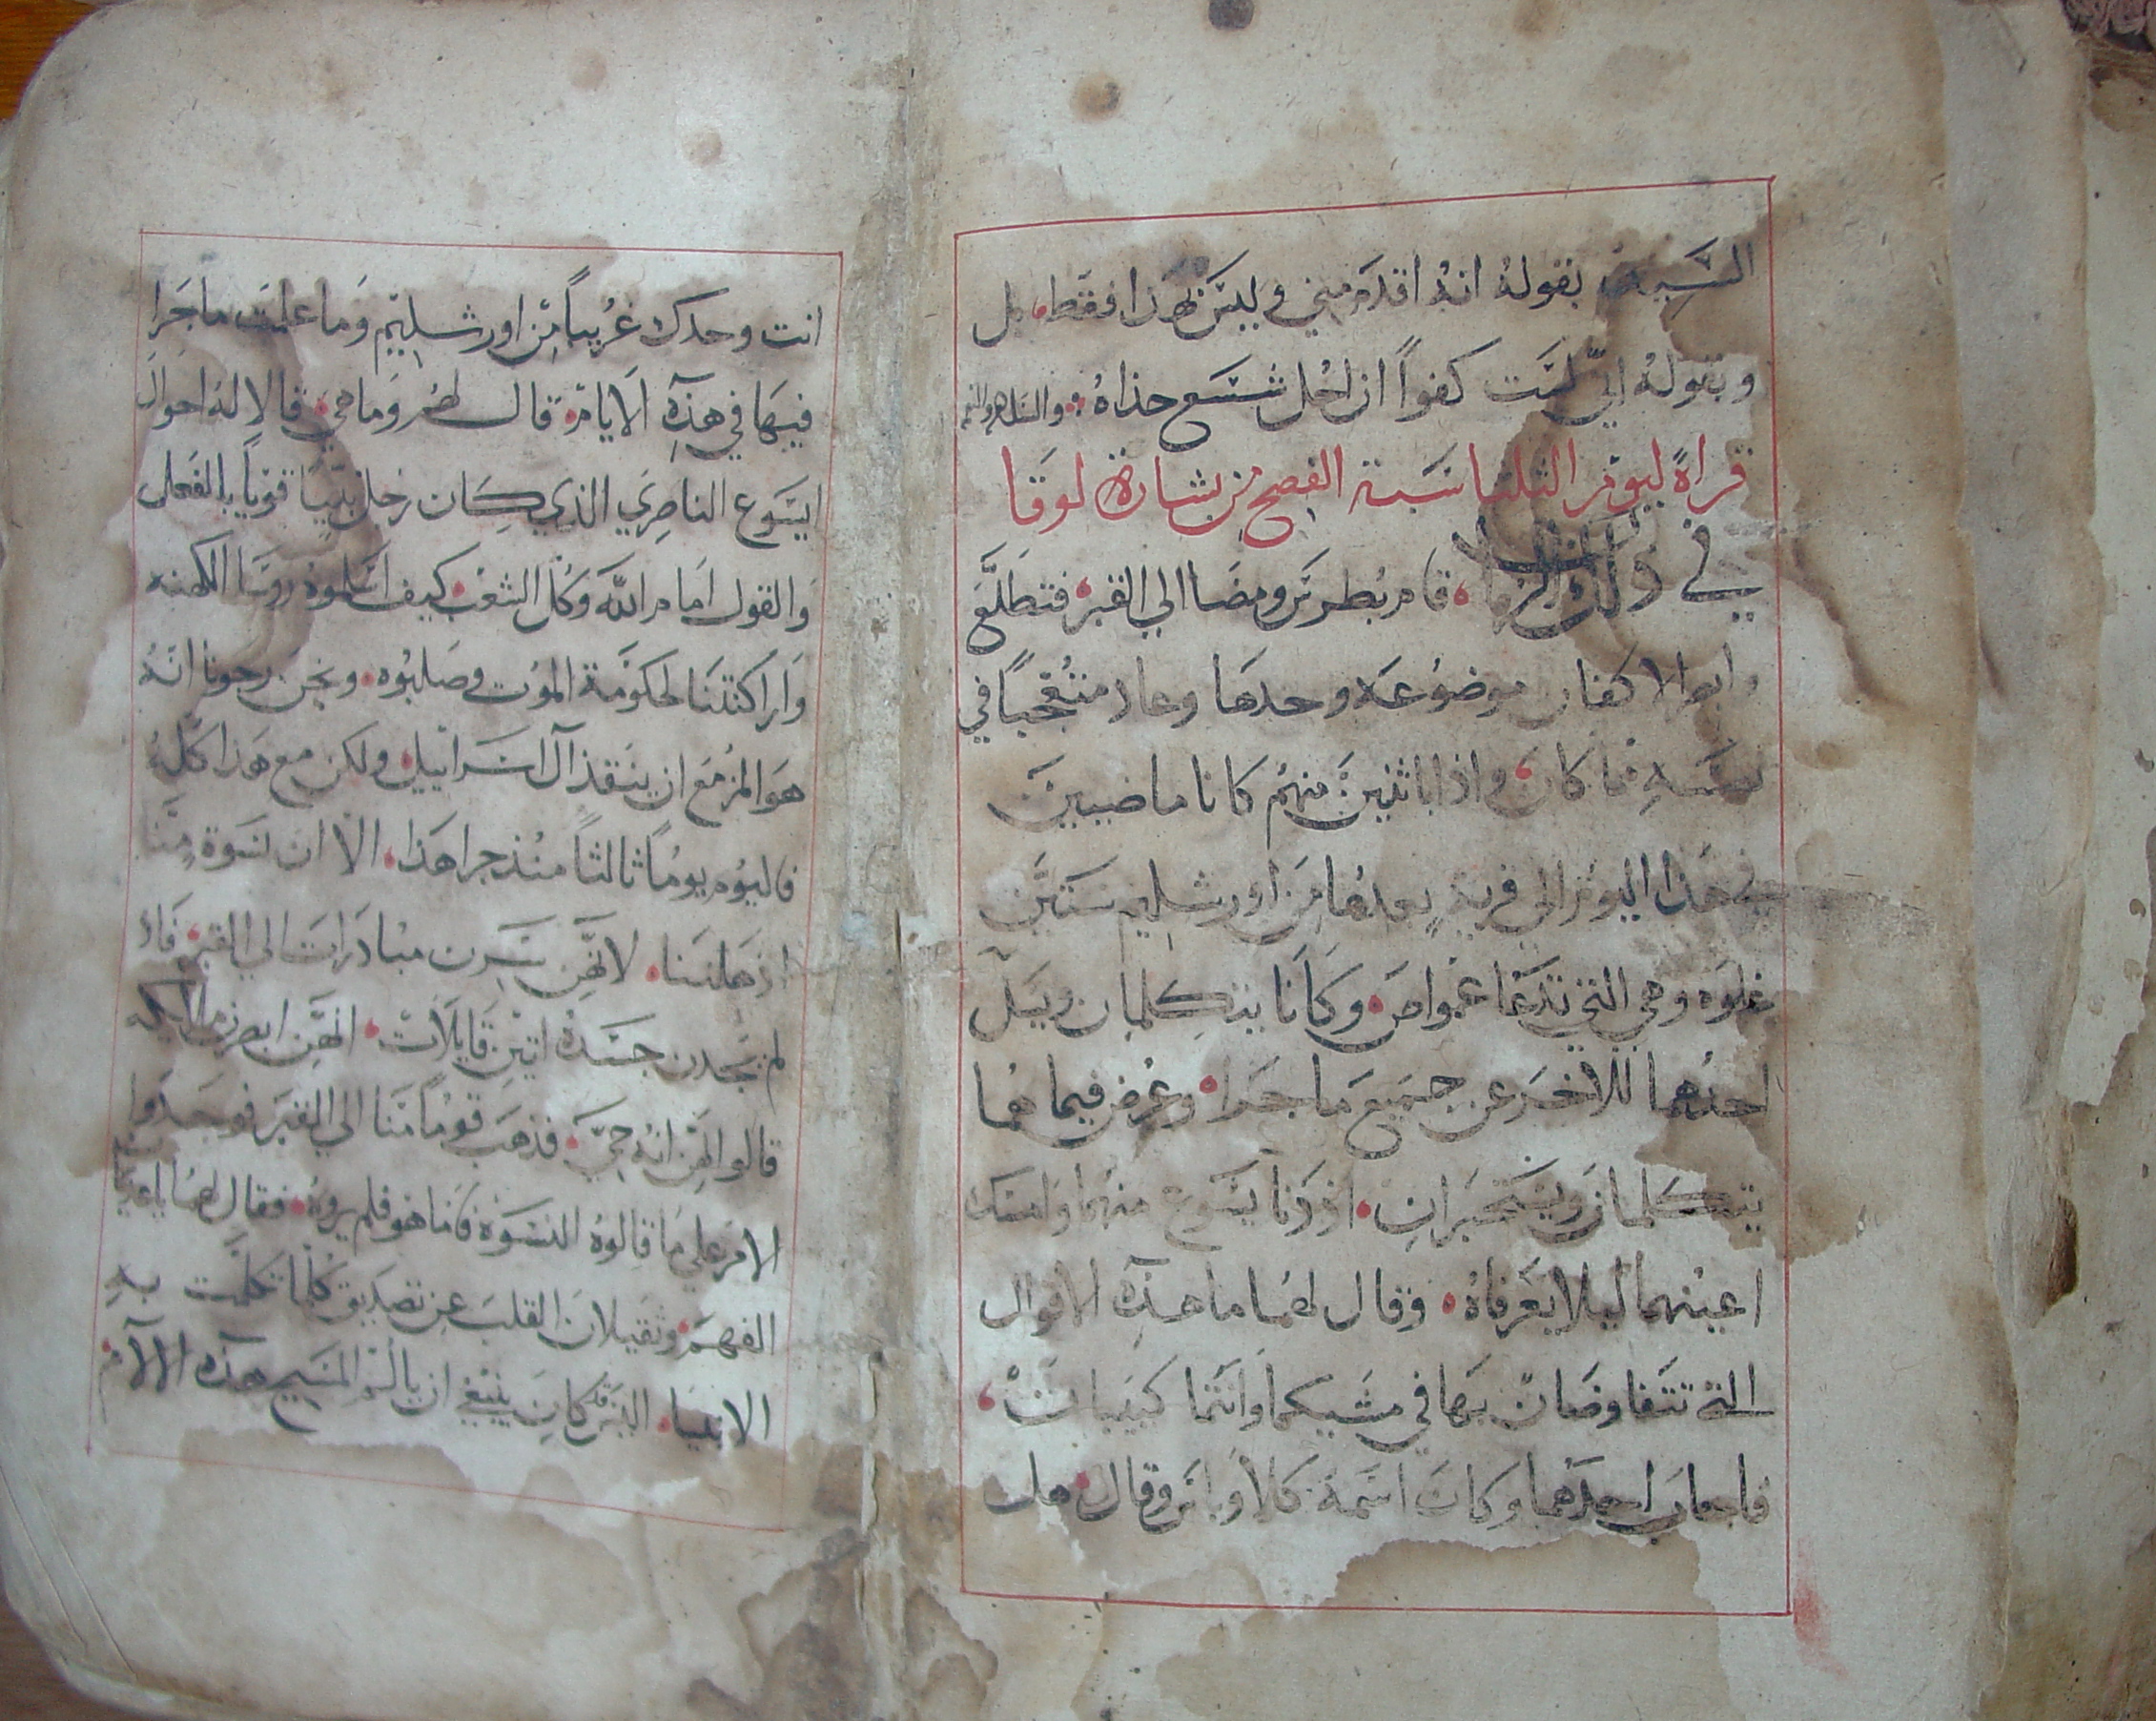 السيد بقوله انه اقدم مني وليس هذا فقط، بل
وبقوله اني لست كفواً ان احُل شسع حذاهُ
قراةً ليوم الثلثا سبة الفصح من بشارة لوقا
في ذلك الزمان قام بطرس ومضا الي القبر، فتطلَّع
وابصر الاكفان موضوعه وحدها وعاد متعجباً في
نفسهِ مما كان، واذا باثنين منهم كانا ماضيين
في هذا اليوم الي قريةٍ بعدها من اورشليم ستين
غلوه وهي التي تدعا عمواص، وكانا يتكلمان ويسل
احدهما للاخر عن جميع ما جرا، وعرض فيما هما
يتكلمان ويستخبران، اذ دنا يسوع منهما وامسك
اعينهما ليلا يعرفاهُ، وقال لهما ما هذه الاقوال
التي تتفاوضان بها في مشيكما وانتما كييبان،
فاجاب احدهما وكان اسمه كلاوباس وقال، هل
انت وحدك غريباً من اورشليم وما علمت ما جرا
فيها في هذهِ الايام، قال لهم وما هي، قالا له احوال
ايسوع الناصري الذي كان رجل نبياً قوياً بالفعل
والقول امام الله وكل الشعب، كيف اسلموهُ روسا الكهنه
واراكنتنا لحكومة الموت وصلبوه، ونحن رجونا انهُ
هو المزمع ان ينقذ آل اسراييل، ولكن مع هذا كلهُ
فاليوم يوماً ثالثاً منذ جرا هذا، الا ان نسوة منَّا
اذهلننا، لانهن سرن مبادرات الي القبر، فاذ
لم يجدن جسده اتين قايلات، انهن ابصرن ملايكه
قالو لهن انه حيّ، فذهب قوماً منا الي القبر فوجدوا
الامر علي ما قالوهُ النسوة فاما هو فلم يروهُ، فقال لهما يا عديمي
الفهم، وثقيلان القلب عن تصديق كلما تكلمت بهِ
الانبيا، اليس قد كان ينبغي ان يالم المسيح هذه الالام،